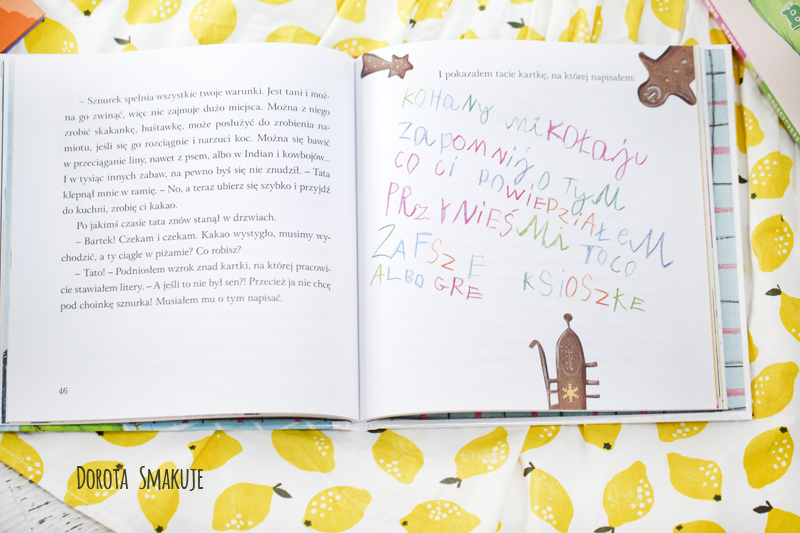 – Sznurek spełnia wszystkie twoje warunki. Jest tani i moż-
na go zwinąć, więc nie zajmuje dużo miejsca. Można z niego
zrobić skakankę, huśtawkę, może posłużyć do zrobienia na-
miotu, jeśli się go rozciągnie i narzuci koc. Można się bawić
w przeciąganie liny, nawet z psem, albo w Indian i kowbojów...
I w tysiąc innych zabaw, na pewno byś się nie znudził. – Tata
klepnął mnie w ramię. – No, a teraz ubierz się szybko i przyjdź
do kuchni, zrobię ci kakao.
Po jakimś czasie tata znów stanął w drzwiach.
– Bartek! Czekam i czekam. Kakao wystygło, musimy wy-
chodzić, a ty ciągle w piżamie? Co robisz?
– Tato! – Podniosłem wzrok znad kartki, na której pracowi-
cie stawiałem litery. – A jeśli to nie był sen?! Przecież ja nie chcę
pod choinkę sznurka! Musiałem mu o tym napisać.
46
I pokazałem tacie kartkę, na której napisałem:
KOHANY miKOŁAJU
ZAPOMNIJ O TYM
CO CI POWIEDZIAŁEM
PRZYNIEŚ Mi TOCO
ZAFSZE
ALBO GRE KSIOSZKE
DOROTA SMAKUJE